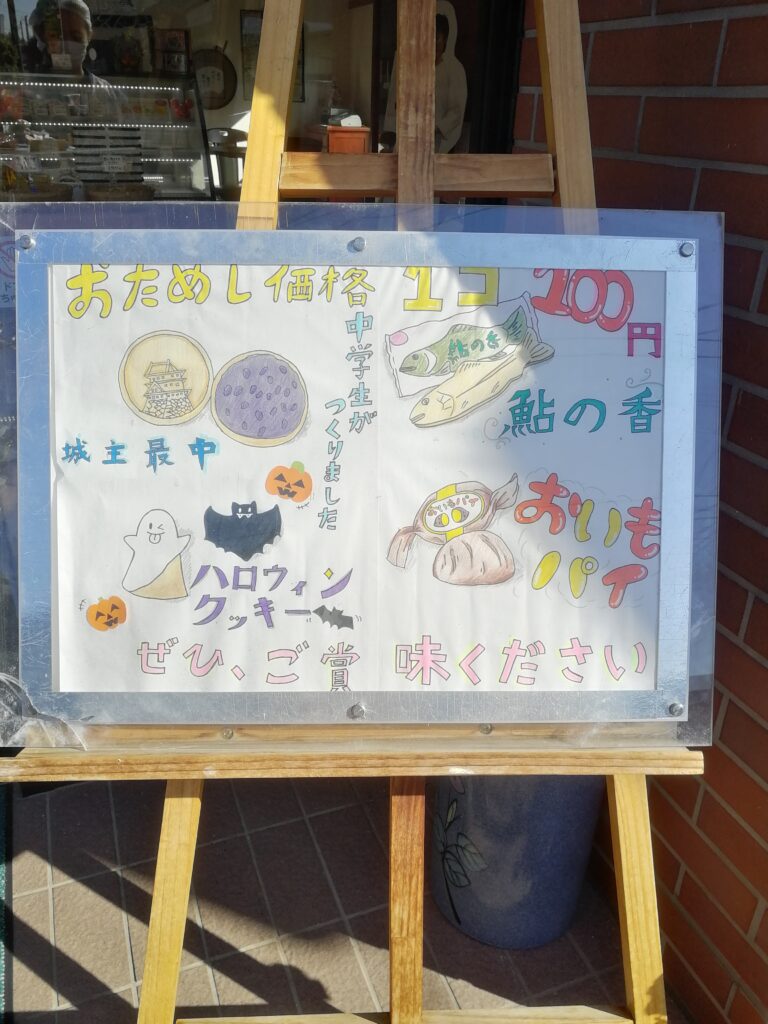 おためし価格 1コ 100円
中学生が
つくりました
鮎の香
鮎の香
城主最中
おいもパイ
おいも
パイ
ハロウィン
クッキー
ぜひ、ご賞味ください